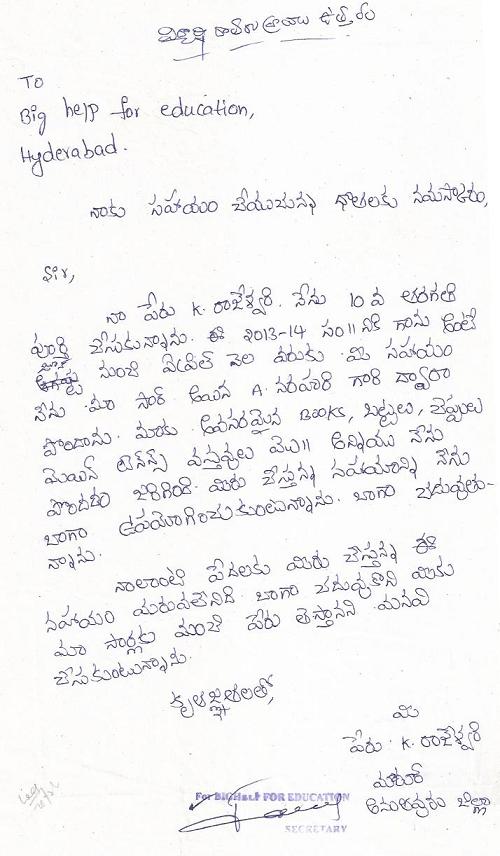 విద్యార్థి రాసిన ఉత్తరం
To
Big help for education,
Hyderabad.
నాకు సహాయం చేయుచున్న దాతలకు నమస్కారం,
Sir,
నా పేరు K. రాజేశ్వరి. నేను 10 వ తరగతి
పూర్తి చేసుకున్నాను. ఈ 2013-14 సం॥ నికి గాను అంటే
జూన్ నుంచి ఏప్రిల్ నెల వరుకు మీ సహాయం
నేను మా సార్ అయిన A. నరహరి గారి ద్వారా
పొందాను. మాకు అవసరమైన Books, బట్టలు, చెప్పులు
మెయిన్ టెనెన్స్ వస్తువులు వెు॥ అన్నియు నేను
పొందడం జరిగింది. మీరు చేస్తున్న సహాయాన్ని నేను
బాగా ఉపయోగించుకుంటున్నాను. బాగా చదువుతు-
న్నాను.
నాలాంటి పేదలకు మీరు చేస్తున్న ఈ
సహాయం మరువలేనిది. బాగా చదువుకొని మీకు
మా సార్లకు మంచి పేరు తెస్తానని మనవి
చేసుకుంటున్నాను.
కృతజ్ఞతలతో,
మీ
పేరు. K. రాజేశ్వరి
మారూర్
అనంతపురం జిల్లా
For BIGHELP FOR EDUCATION
SECRETARY